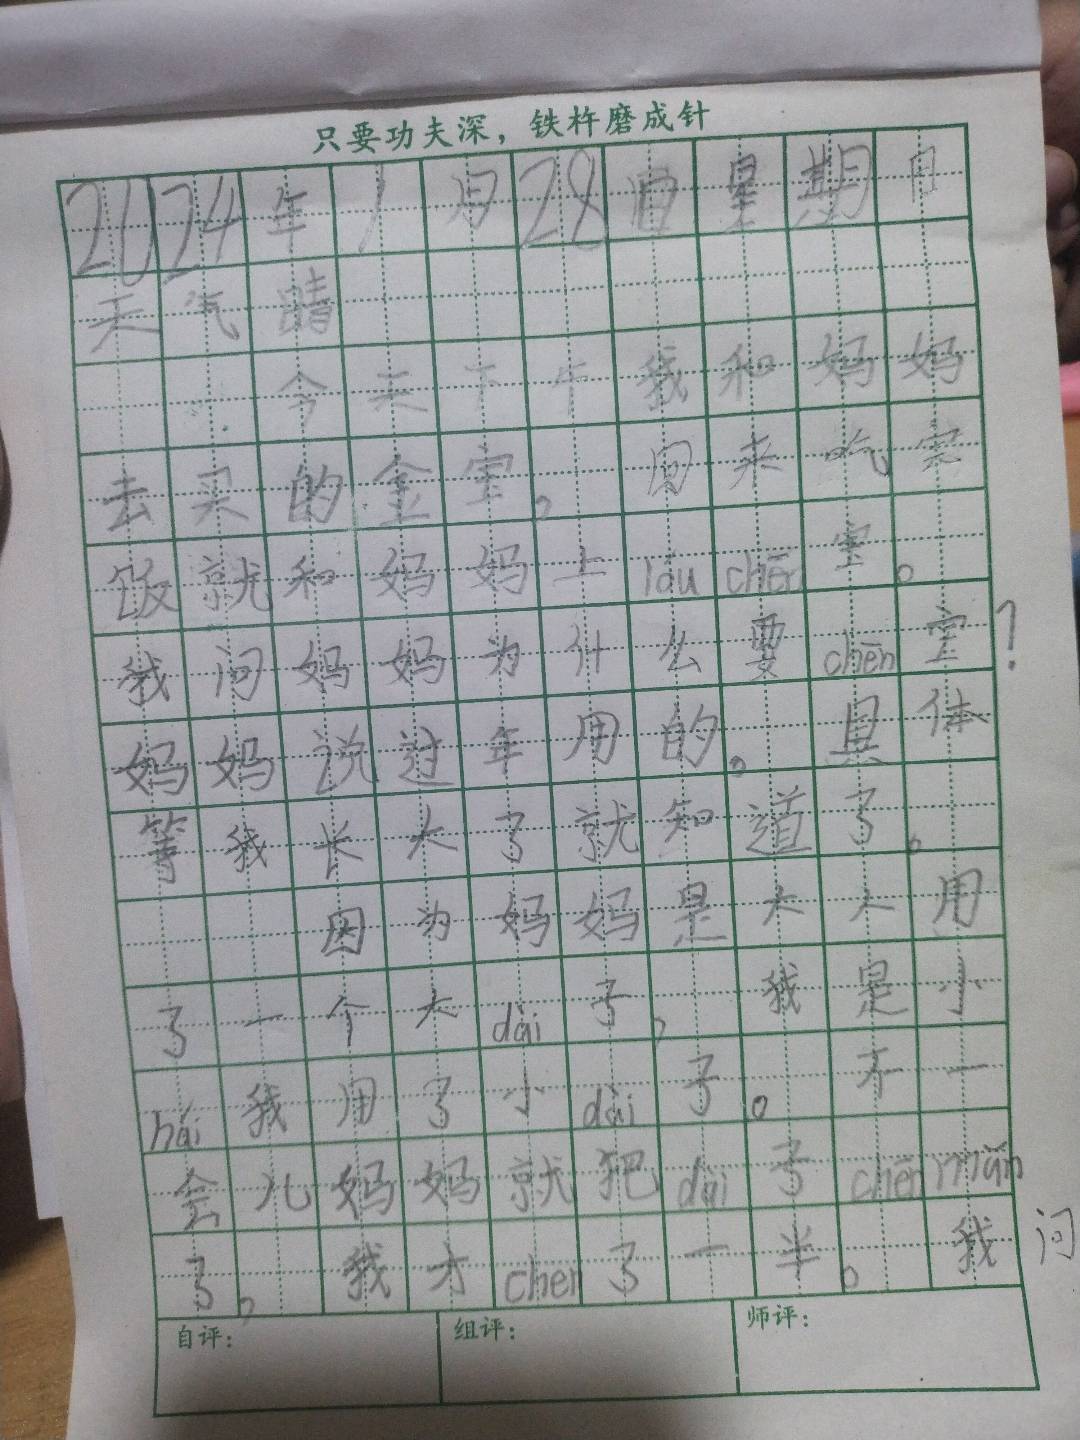 只要功夫深，铁杵磨成针
2024年1月28日星期日
天气晴
今天下午我和妈妈
去买的金宝。回来吃完
饭就和妈妈上lóu chēn宝。
我问妈妈为什么要chēn宝？
妈妈说过年用的。具体
等我长大了就知道了。
因为妈妈是大人用
了一个大dài子，我是小
hái我用了小dài子。不一
会儿妈妈就把dài子chēn mǎn
了。我才chen了一半。我问
自评：
组评：
师评：